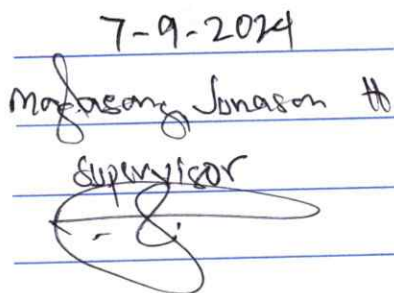 7-9-2024
Magbasang, Jonason H
Supervisor